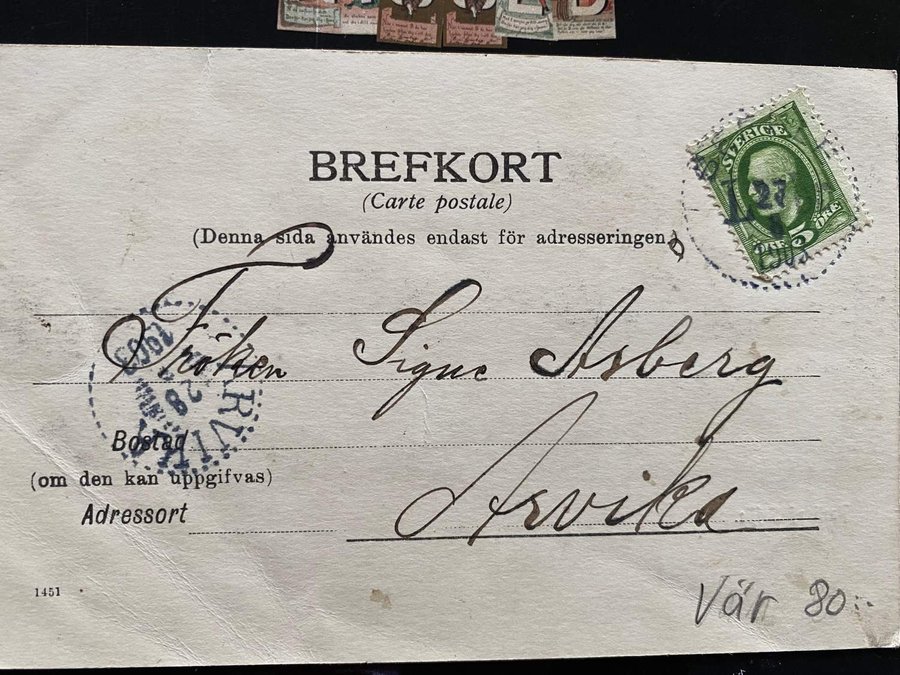 BREFKORT
(Carte postale)
(Denna sida användes endast för adresseringen.)
SVERIGE
27
1903
5 ÖRE
Fröken Signe Asberg
1903
28
ARVIKA
Bostad
(om den kan uppgifvas)
Adressort
Arvika
1451
Vär 80:-